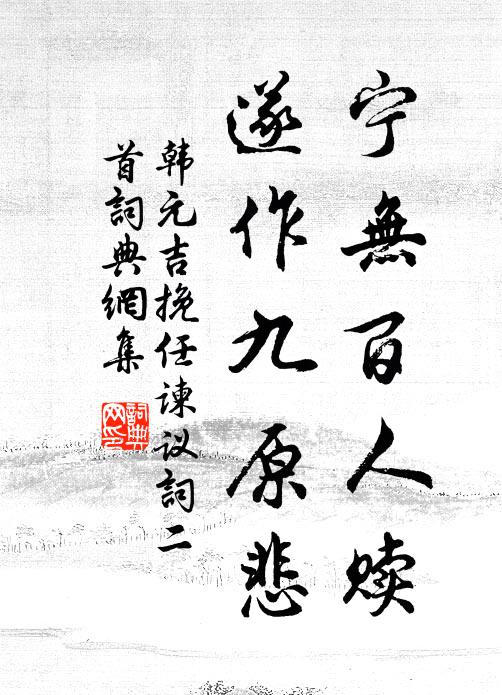 宁無百人赎
遂作九原悲
韩元吉挽任谏议詞二
首詞典網集
詞典网印